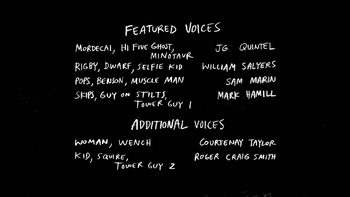 FEATURED VOICES
MORDECAI, HI FIVE GHOST, MINOTAUR JG QUINTEL
RIGBY, DWARF, SELFIE KID WILLIAM SALYERS
POPS, BENSON, MUSCLE MAN SAM MARIN
SKIPS, GUY ON STILTS, TOWER GUY 1 MARK HAMILL
ADDITIONAL VOICES
WOMAN, WENCH COURTENAY TAYLOR
KID, SQUIRE, TOWER GUY 2 ROGER CRAIG SMITH